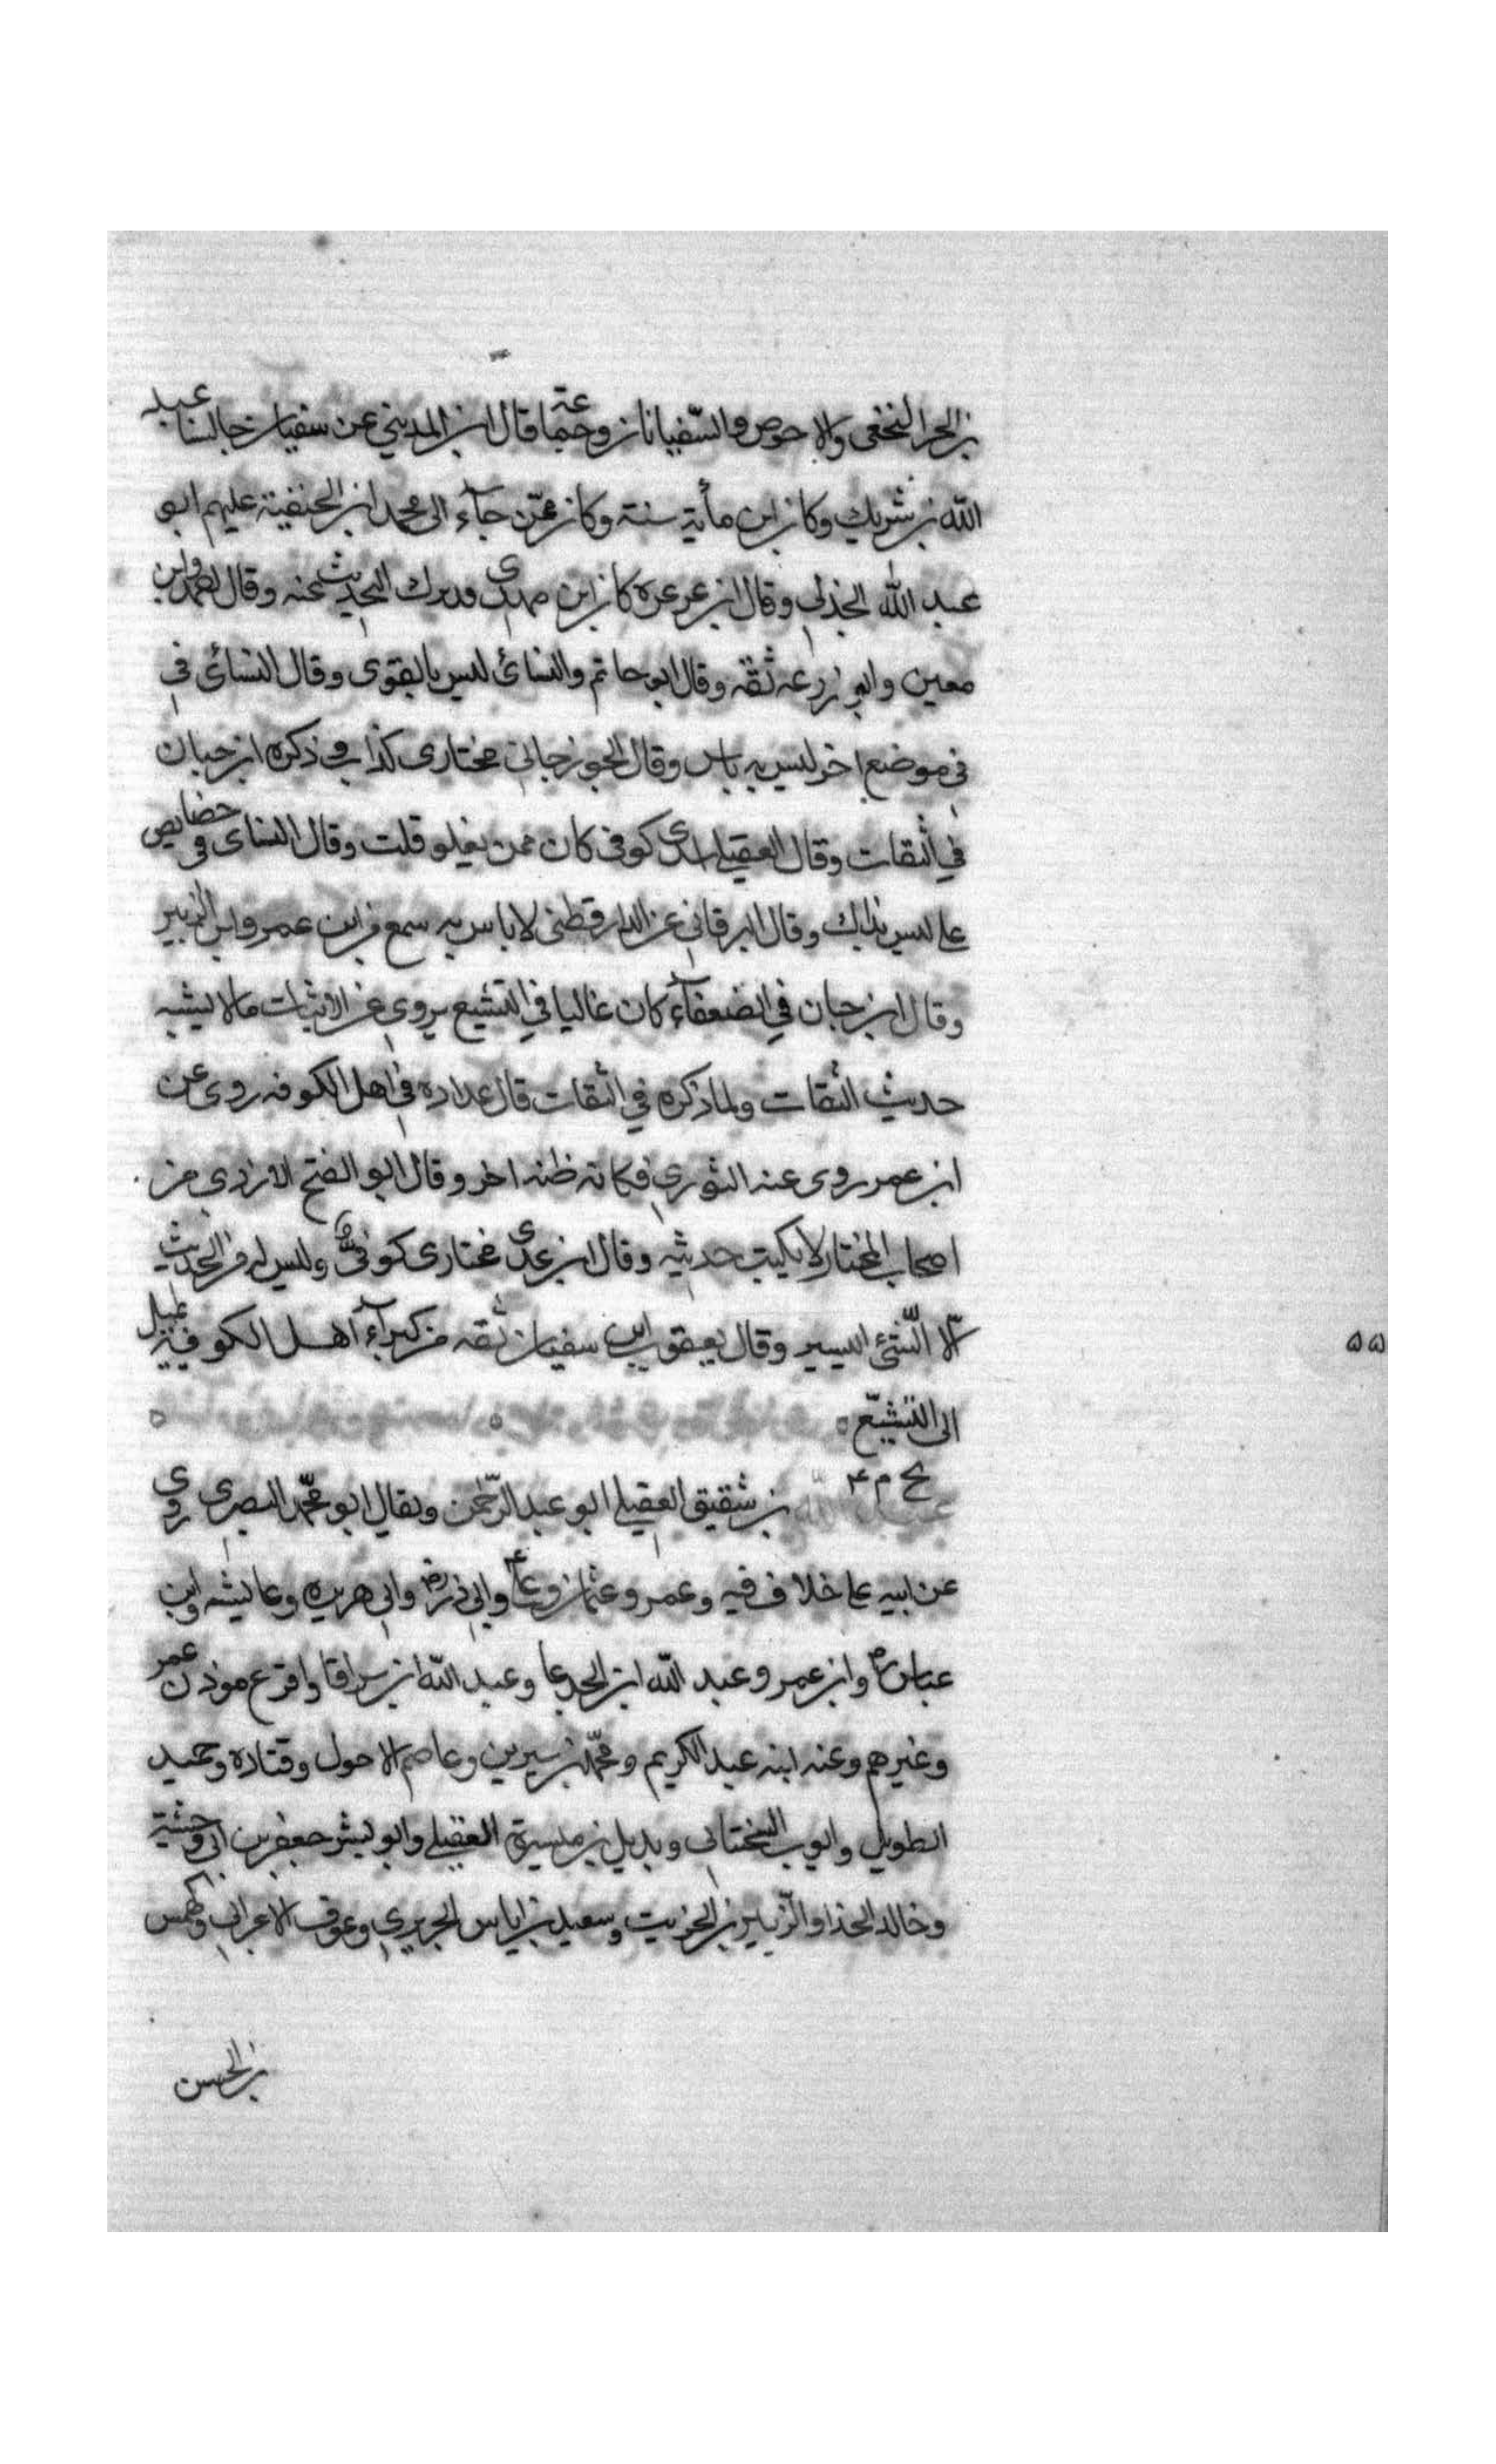 بن الحر النخعي والاحوص والسفيانان وجماعة قال ابن المديني عن سفيان جالسنا عبد
الله بن شريك وكان ابن مأية سنة وكان ممّن جآء الى محمد ابن الحنفية عليهم ابو
عبد الله الجذلي وقال ابن عرعرة كان ابن مهدى وقد ترك الحديث عنه وقال احمد وابن
معين وابو زرعه ثقه وقال ابو حاتم والنسائ ليس بالقوى وقال النسائى في
في موضع اخر ليس به باس وقال الجوزجاني مختارى كذاب ذكره ابن حبان
في الثقات وقال العقيلي كوفى كان ممن يغلو قلت وقال النساى فى خصايص
على ليس بذلك وقال البرقاني عن الدارقطنى لا باس به سمع من ابن عمر وابن الزبير
وقال ابن حبان في الضعفآء كان غاليا في التشيع يروى عن الاثبات مالا يشبه
حديث الثقات ولما ذكره في الثقات قال عداده في اهل الكوفه روى عن
ابن عمر روى عنه الثوري فكانه ظنه اخر وقال ابو الفتح الازدي من
اصحاب المختار لا يكتب حديثه وقال ابن عدى مختارى كوفى وليس له من الحديث
الّا الشّئ اليسير وقال يعقوب ابن سفيان ثقه من كبرآء اهل الكوفة يميل
الى التشيّع
بخ م ۴
بن شقيق العقيلي ابو عبد الرّحمن ويقال ابو محمّد البصرى روى
عن ابيه على خلاف فيه وعمر وعثمان وعلى وابى ذر وابى هريره وعايشه وابن
عباس وابن عمر وعبد الله ابن الجدعا وعبد الله ابن سراقا واقرع موذن عمر
وغيرهم وعنه ابنه عبد الكريم ومحمّد بن سيرين وعاصم الاحول وقتاده وحميد
الطويل وايوب السختيانى وبديل بن ميسرة العقيلي وابو بشر جعفر بن ابى وحشية
وخالد الحذا والزّبير بن الخريت وسعيد بن اياس الجريرى وعوف الاعرابي وكهمس
بن الحسن
۵۵